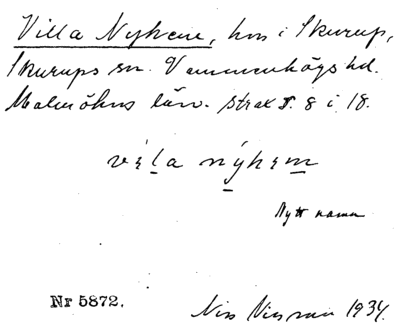 Villa Nyhem, hus i Skurup,
Skurups sn. Vemmenhögs hd.
Malmöhus län. strax S. 8 i 18.
vila nýhem
Nytt namn
Nr 5872.
1934.